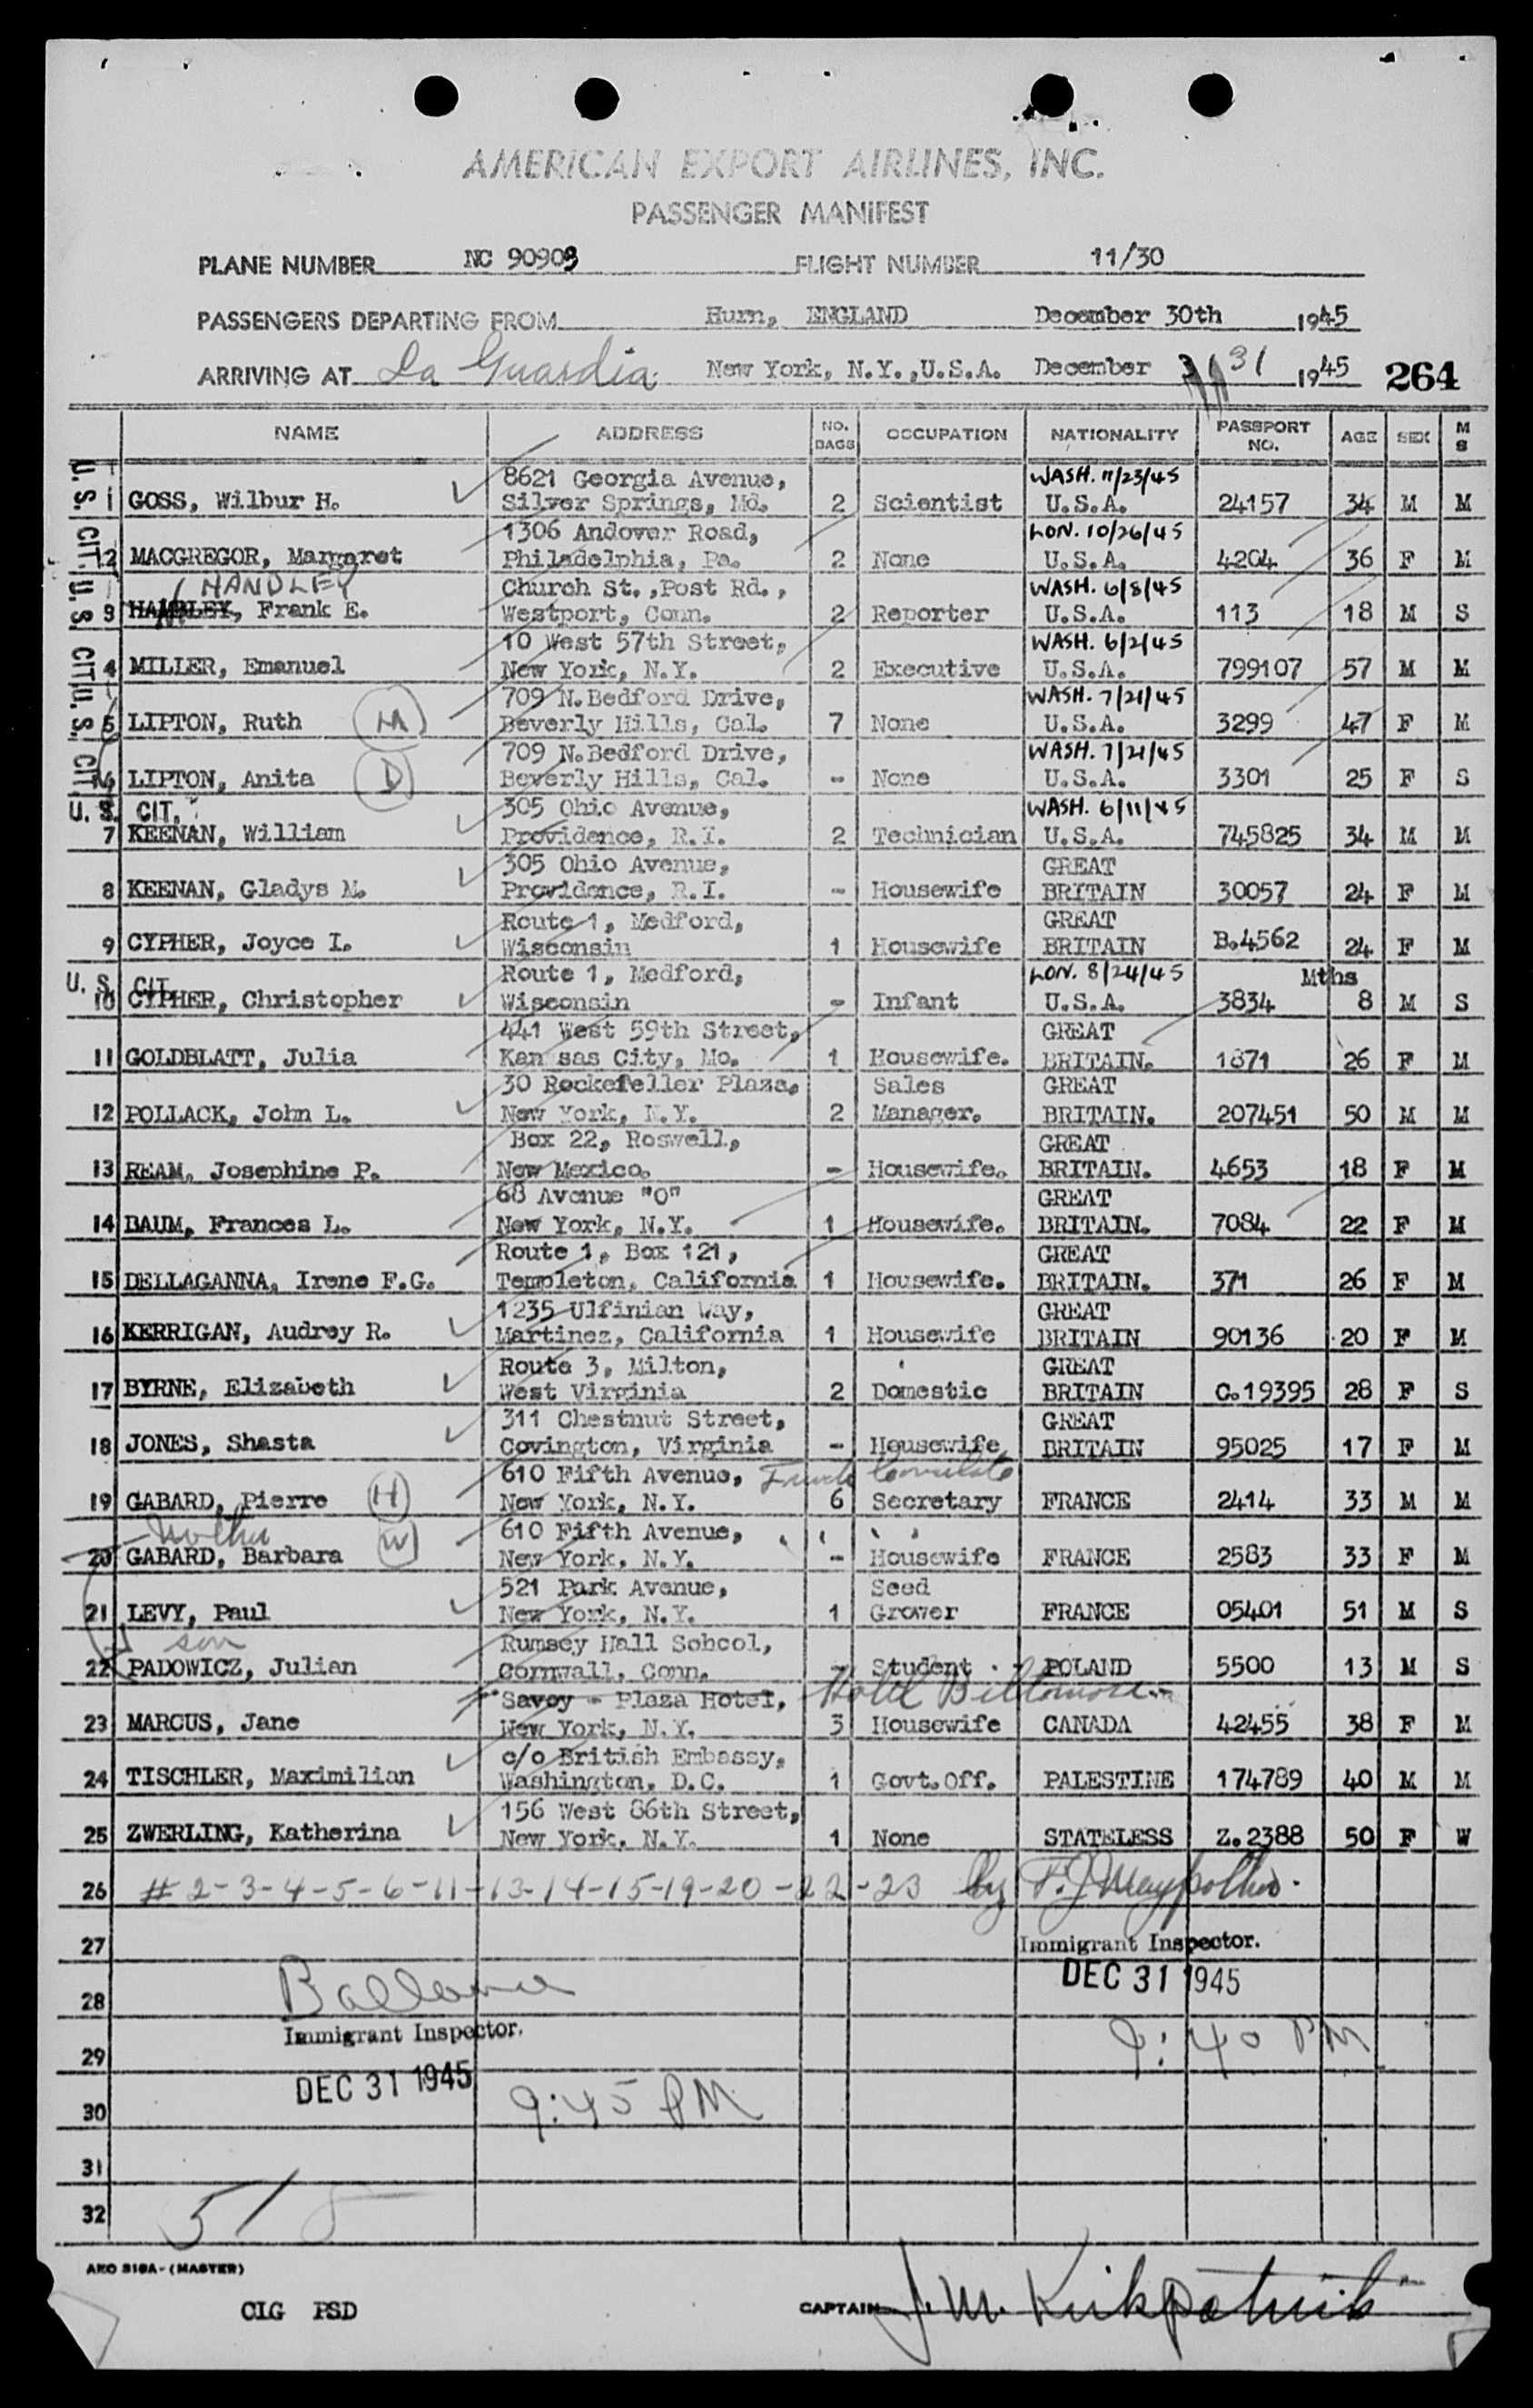 AMERICAN EXPORT AIRLINES, INC.
PASSENGER MANIFEST
PLANE NUMBER NC 90903 FLIGHT NUMBER 11/30
PASSENGERS DEPARTING FROM Hurn, ENGLAND December 30th 1945
ARRIVING AT La Guardia New York, N.Y.,U.S.A. December 31 1945 264
NAME ADDRESS NO. BAGS OCCUPATION NATIONALITY PASSPORT NO. AGE SEX M S
U.S. CIT. U.S. CIT U.S. CIT
8621 Georgia Avenue, WASH. 11/23/45
1 GOSS, Wilbur H. Silver Springs, Md. 2 Scientist U.S.A. 24157 34 M M
1306 Andover Road, LON. 10/26/45
2 MACGREGOR, Margaret Philadelphia, Pa. 2 None U.S.A. 4204 36 F M
HANDLEY Church St.,Post Rd., WASH. 6/8/45
3 HAMBLEY, Frank E. Westport, Conn. 2 Reporter U.S.A. 113 18 M S
10 West 57th Street, WASH. 6/2/45
4 MILLER, Emanuel New York, N.Y. 2 Executive U.S.A. 799107 57 M M
709 N.Bedford Drive, WASH. 7/21/45
5 LIPTON, Ruth M Beverly Hills, Cal. 7 None U.S.A. 3299 47 F M
709 N.Bedford Drive, WASH. 7/21/45
6 LIPTON, Anita D Beverly Hills, Cal. - None U.S.A. 3301 25 F S
U. S. CIT. 305 Ohio Avenue, WASH. 6/11/45
7 KEENAN, William Providence, R.I. 2 Technician U.S.A. 745825 34 M M
305 Ohio Avenue, GREAT
8 KEENAN, Gladys M. Providence, R.I. - Housewife BRITAIN 30057 24 F M
Route 1, Medford, GREAT
9 CYPHER, Joyce I. Wisconsin 1 Housewife BRITAIN B.4562 24 F M
U. S. CIT. Route 1, Medford, LON. 8/24/45 Mths
10 CYPHER, Christopher Wisconsin - Infant U.S.A. 3834 8 M S
441 West 59th Street, GREAT
11 GOLDBLATT, Julia Kansas City, Mo. 1 Housewife. BRITAIN. 1871 26 F M
30 Rockefeller Plaza, Sales GREAT
12 POLLACK, John L. New York, N.Y. 2 Manager. BRITAIN. 207451 50 M M
Box 22, Roswell, GREAT
13 REAM, Josephine P. New Mexico. - Housewife. BRITAIN. 4653 18 F M
68 Avenue "O" GREAT
14 BAUM, Frances L. New York, N.Y. 1 Housewife. BRITAIN. 7084 22 F M
Route 1, Box 121, GREAT
15 DELLAGANNA, Irene F.G. Templeton, California 1 Housewife. BRITAIN. 371 26 F M
1235 Ulfinian Way, GREAT
16 KERRIGAN, Audrey R. Martinez, California 1 Housewife BRITAIN 90136 20 F M
Route 3, Milton, GREAT
17 BYRNE, Elizabeth West Virginia 2 Domestic BRITAIN C.19395 28 F S
311 Chestnut Street, GREAT
18 JONES, Shasta Covington, Virginia - Housewife BRITAIN 95025 17 F M
610 Fifth Avenue, French Consulate
19 GABARD, Pierre H New York, N.Y. 6 Secretary FRANCE 2414 33 M M
Mother 610 Fifth Avenue,
20 GABARD, Barbara W New York, N.Y. - Housewife FRANCE 2583 33 F M
521 Park Avenue, Seed
21 LEVY, Paul New York, N.Y. 1 Grower FRANCE 05401 51 M S
son Rumsey Hall School,
22 PADOWICZ, Julian Cornwall, Conn. - Student POLAND 5500 13 M S
Savoy - Plaza Hotel, Hotel Biltmore
23 MARCUS, Jane New York, N.Y. 3 Housewife CANADA 42455 38 F M
c/o British Embassy,
24 TISCHLER, Maximilian Washington, D.C. 1 Govt.Off. PALESTINE 174789 40 M M
156 West 86th Street,
25 ZWERLING, Katherina New York, N.Y. 1 None STATELESS Z.2388 50 F W
26 # 2-3-4-5-6-11-13-14-15-19-20-22-23 by
27 Immigrant Inspector.
28 DEC 31 1945
Immigrant Inspector.
29 9:40 PM
DEC 31 1945
30 9:45 PM
31
32
AEO 318A-(MASTER)
CLG PSD CAPTAIN J. M. Kirkpatrick